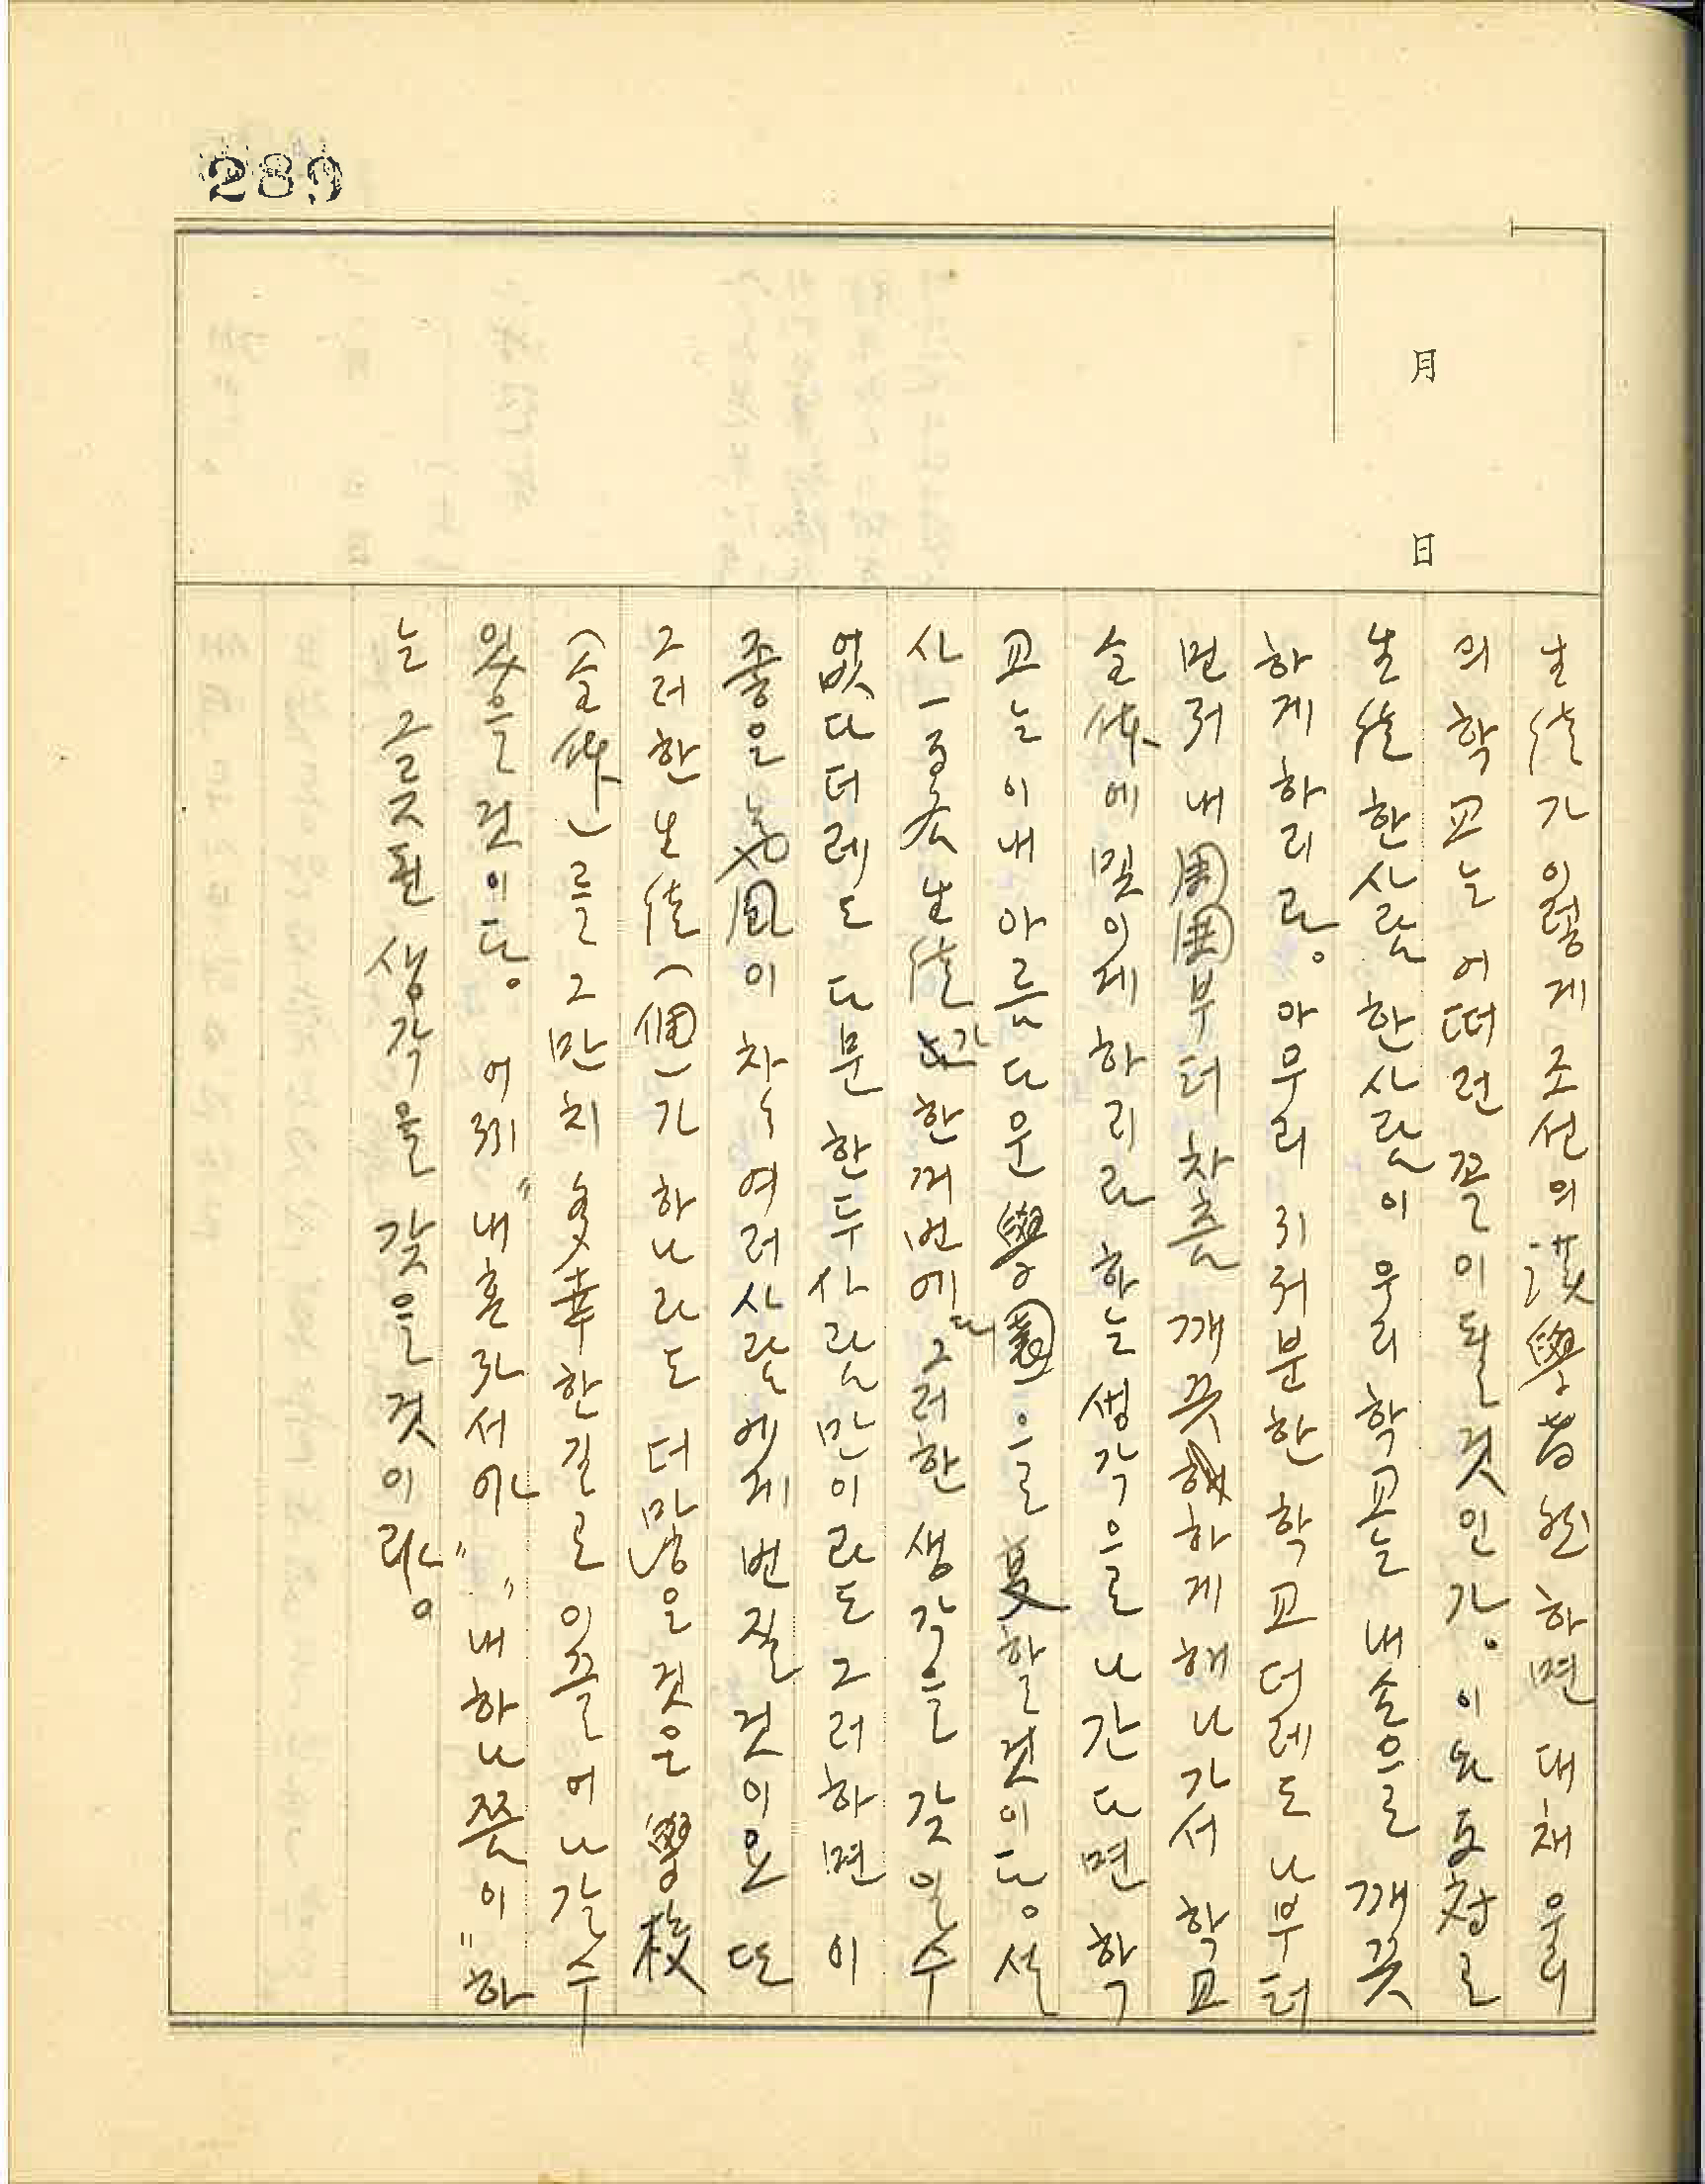 289
月
日
生徒가 이렇게 조선의 漢學者현하면 대채 우리
의 학교는 어떠런 꼴이 될 것인가. 이 창로
生徒 한사람 한사람이 우리 학교늘 내 손으로 깨끗
하게 하리라. 아무리 지저분한 학교더레도 나부터
먼저 내 周圍부터 차츰 깨끗하게 해나가서 학교
全体에 및이게하리라 하는 생각으로 나간다면 학
교는 이내 아름다운 學園으로 変할것이다. 설
사 一ᅟ 生徒가 한꺼번에 다 그러한 생각을 갖일수
없다더레도 다문 한두사람만이라도 그러하면 이
좋은 風이 차々 여러사람에게 번질 것이요 또
그러한 生徒(個)가 하나라도 더 많은 것은 學校
(全体)를 그만치 幸한길로 이끌어나갈수
있을 것이다. 어찌 "내 혼자서야" "내 하나쯤이" 하
는 그릇된 생각을 갖을 것이랴.